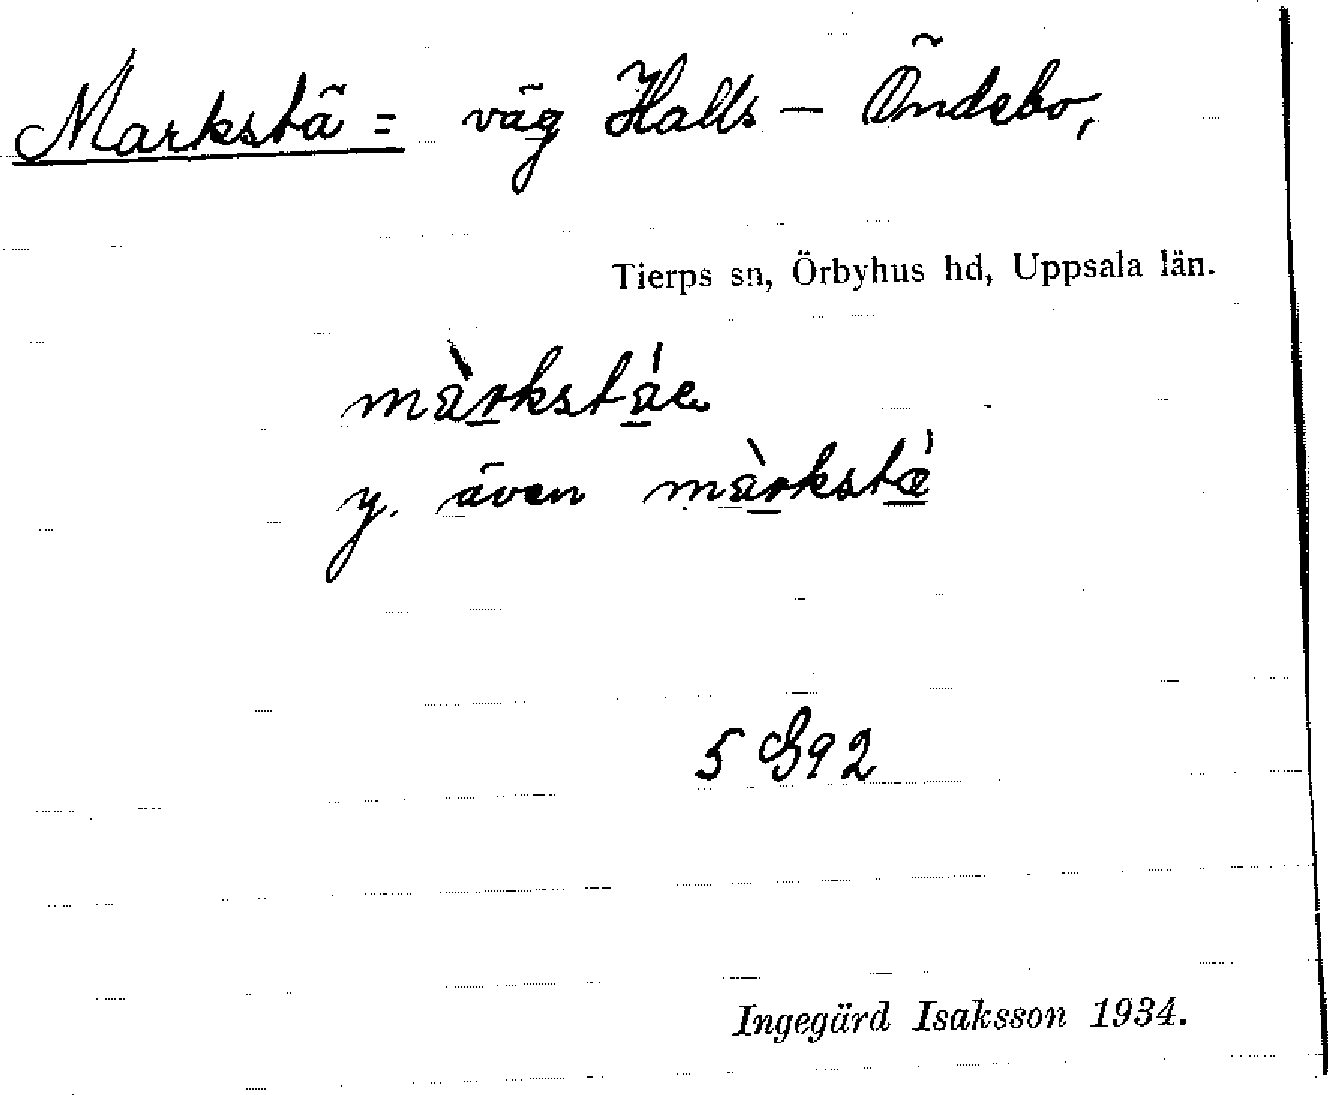 Markstä = väg Halls – Öndebo,
Tierps sn, Örbyhus hd, Uppsala län.
màrkstáe
y. även màrkstǽ
5 G 9 2
Ingegärd Isaksson 1934.